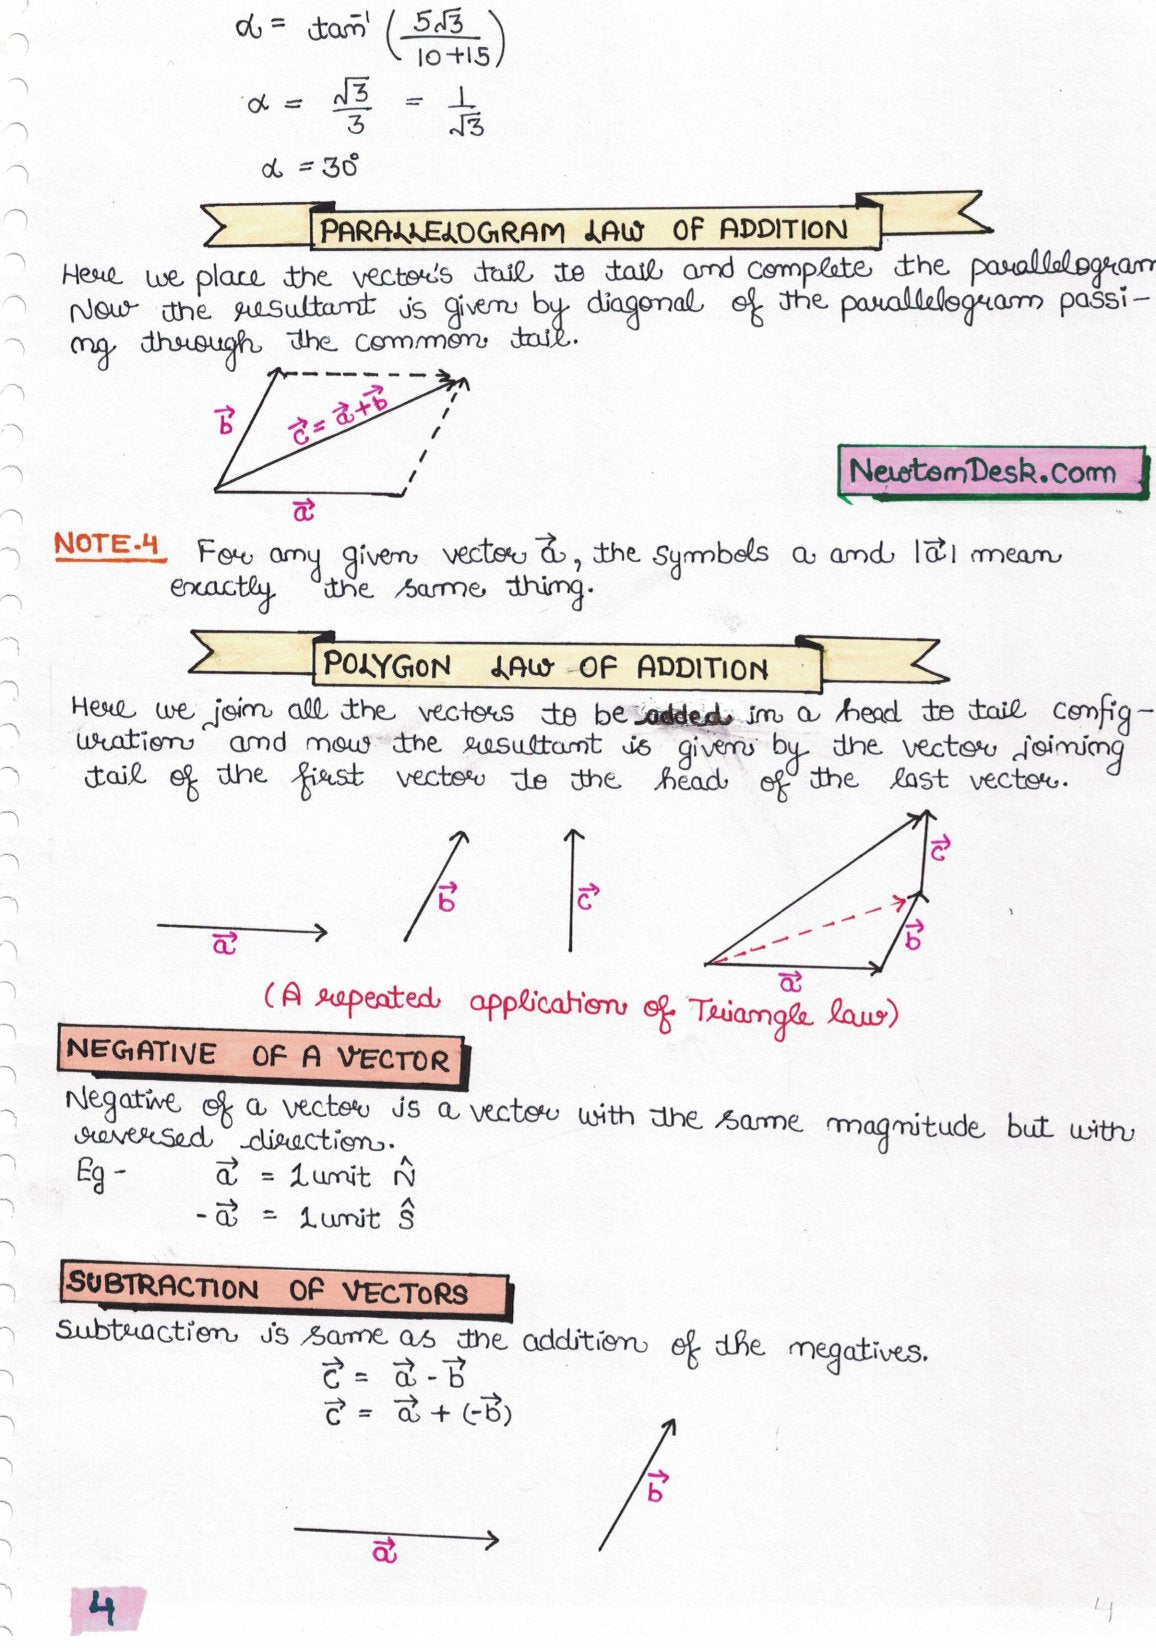 α = tan⁻¹ (5√3 / 10+15)
α = √3/3 = 1/√3
α = 30°
PARALLELOGRAM LAW OF ADDITION
Here we place the vector's tail to tail and complete the parallelogram
Now the resultant is given by diagonal of the parallelogram passi-
ng through the common tail.
b⃗
c⃗ = a⃗ + b⃗
a⃗
NewtonDesk.com
NOTE-4 For any given vector a⃗, the symbols a and |a⃗| mean
exactly the same thing.
POLYGON LAW OF ADDITION
Here we join all the vectors to be added in a head to tail config-
uration and now the resultant is given by the vector joining
tail of the first vector to the head of the last vector.
a⃗ b⃗ c⃗
c⃗
b⃗
a⃗
(A repeated application of Triangle law)
NEGATIVE OF A VECTOR
Negative of a vector is a vector with the same magnitude but with
reversed direction.
Eg - a⃗ = 1 unit N̂
-a⃗ = 1 unit Ŝ
SUBTRACTION OF VECTORS
Subtraction is same as the addition of the negatives.
c⃗ = a⃗ - b⃗
c⃗ = a⃗ + (-b⃗)
b⃗
a⃗
4
4